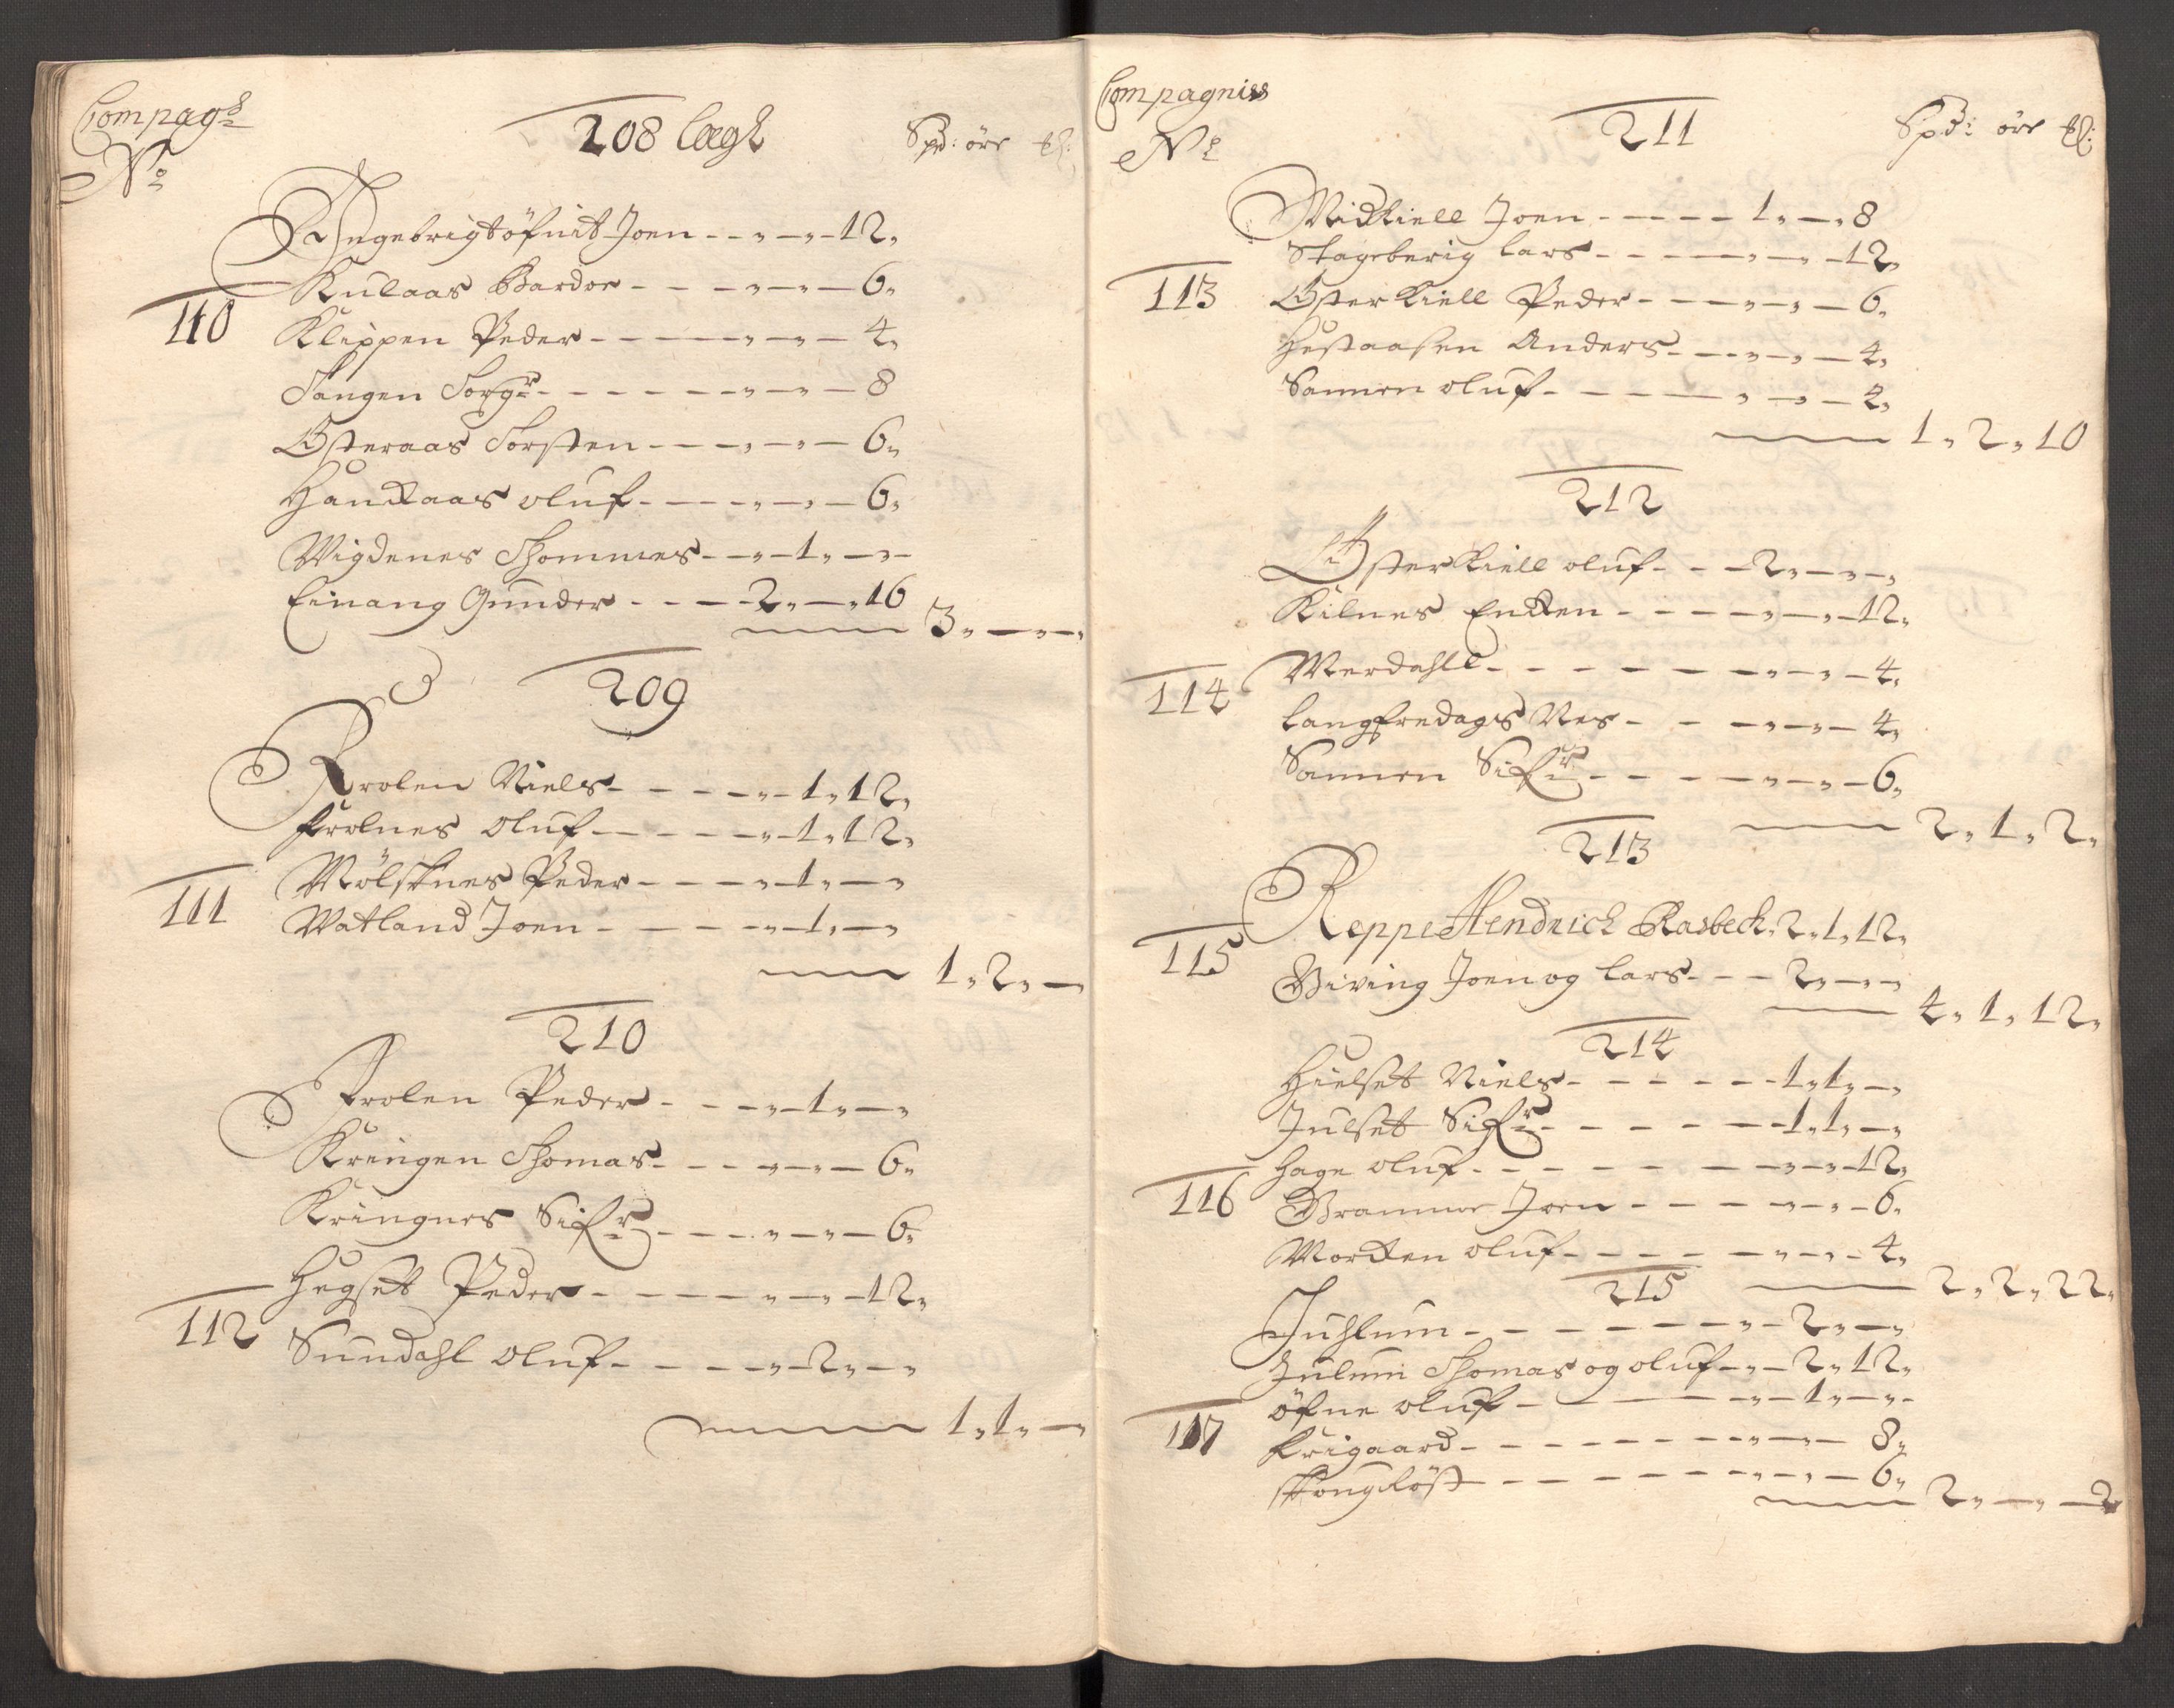 Compag:
No
208 Lægh
Spd: öre
Ingebrigtöfnit Joen - - „ - „ - 12„
Kulaas Bardoe - - - „ - „ - 6„
110
Klippen Peder - - - - „ - „ - 4„
Tangen Torgr - - - - - „ - „ - 8
Österaas Torsten - - - „ - „ - 6„
Handaas oluf - - - „ - „ - 6„
Wigdenes Thommes - - „ - 1„ - „ -
Einang Gunder - - - 2„ - „ 16
3„ - „ - „
209
Krolen Niels - - - - „ - 1„ 12„
Frolnes Oluf - - - - „ - 1„ 12„
111
Mölsknes Peder - - - „ - 1„ - „
Watland Joen - - - - „ - 1„ - „
1„ 2„ -
210
Frolen Peder - - - „ - 1„ - „
Kringen Thomas - - - „ - „ - 6„
Kringnes Sifr - - - - „ - „ - 6„
Hegset Peder - - - - „ - „ - 12„
112
Sundahl Oluf - - - - „ - 2„ - „
1„ 1„ -
Compagnies
No
211
Spd: öre
Midkiell Joen - - - - 1„ - „ 8
Stageberig Lars - - - - „ - „ - 12„
113
Österkiell Peder - - - - „ - „ - 6„
Hestaasen Anders - - - „ - „ - 4„
Sannen oluf - - - - „ - „ - 4„
1„ 2„ 10
212
Österkiell oluf - - - 2„ - „ - „
Kilnes Enken - - - - „ - „ - 12„
Werdahll - - - - - „ - „ - 4„
114
Langfredags Nes - - - „ - „ - 4„
Sannen Sifr - - - - „ - „ - 6„
2„ 1„ 2„
213
Reppe Hendrich Rasbech„ 2„ 1„ 12„
115
Giving Joen og Lars - - - 2„ - „ - „
4„ 1„ 12„
214
Hielset Niels - - - - - 1„ 1„ - „
Julset Sifr - - - - - 1„ 1„ - „
Hage oluf - - - - - „ - „ - 12„
116
Brannoe Joen - - - - „ - „ - 6„
Morken oluf - - - - „ - „ - 4„
2„ 2„ 22„
215
Juhlum - - - - - - „ - 2„ - „
Julum Thomas og oluf - „ - 2„ 12„
öfne oluf - - - - „ - 1„ - „
117
Krigaard - - - - - - „ - „ - 8„
Skonglöst - - - - - „ - „ - 6„
2„ - „ - 2